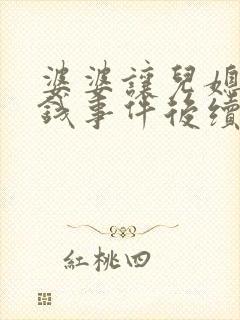 婆婆讓兒媳
錢事件後續
紅桃四